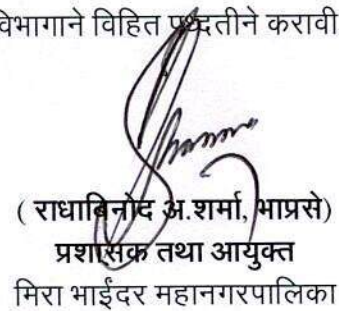 विभागाने विहित पध्दतीने करावी
( राधाबिनोद अ.शर्मा, भाप्रसे)
प्रशासक तथा आयुक्त
मिरा भाईंदर महानगरपालिका